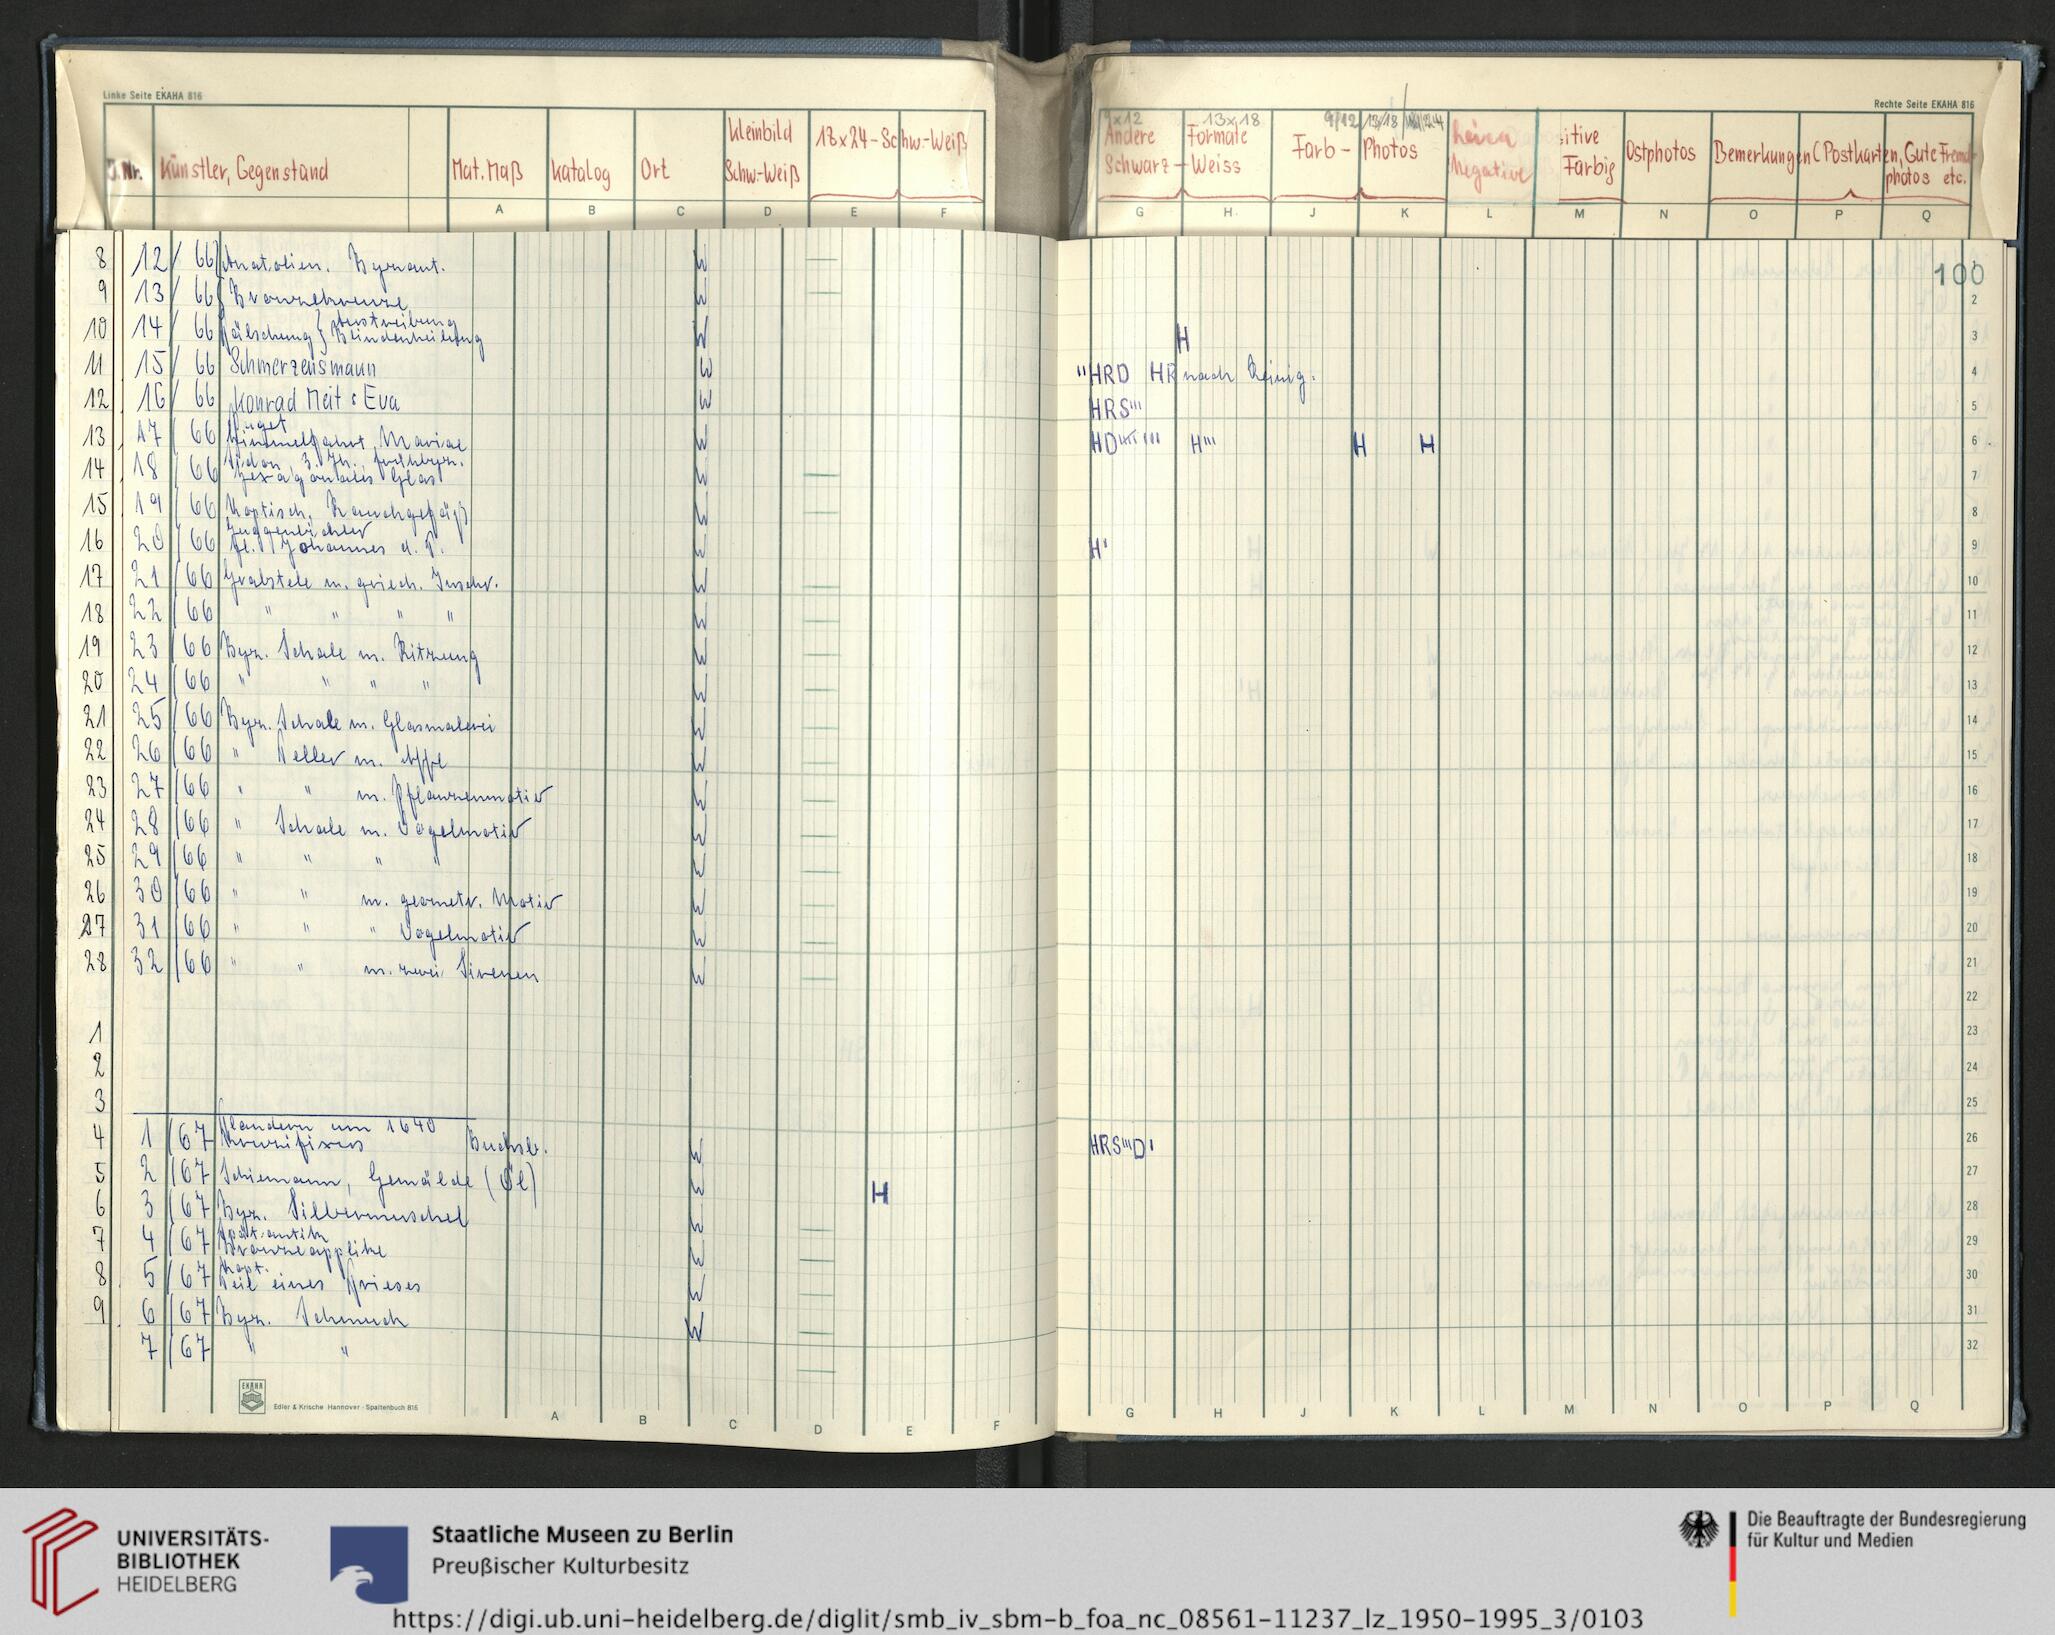 Linke Seite EKAHA 816
J. Nr. Künstler, Gegenstand Mat. Maß Katalog Ort Kleinbild Schw.-Weiß 18x24-Schw.-Weiß
A B C D E F
8 12/66 Anatolien. Byzant. W —
9 13/66 Bronzekreuze W —
10 14/66 Fälschung } Austreibung Blindenheilung W
11 15/66 Schmerzensmann W
12 16/66 Konrad Meit: Eva W
13 17/66 Puget Himmelfahrt Mariae W
14 18/66 Sidon, 3. Jh., frühbyz. Hexagonales Glas W —
15 19/66 Koptisch, Rauchgefäß W —
16 20/66 Guggenbichler Hl. Johannes d. T. W
17 21/66 Grabstele m. griech. Inschr. W —
18 22/66 " " " " W —
19 23/66 Byz. Schale m. Ritzung W —
20 24/66 " " " " W —
21 25/66 Byz. Schale m. Glasmalerei W —
22 26/66 " Teller m. W —
23 27/66 " " m. Pflanzenmotiv W —
24 28/66 " Schale m. Vogelmotiv W —
25 29/66 " " " " W —
26 30/66 " " m. geometr. Motiv W —
27 31/66 " " " Vogelmotiv W —
28 32/66 " " m. zwei Sirenen W —
1
2
3
4 1/67 Flandern um 1640 Kruzifixus Buchsb. W
5 2/67 Schiemann, Gemälde (Öl) W H
6 3/67 Byz. Silbermuschel W —
7 4/67 Spätantik Bronzeapplike W —
8 5/67 Kopt. Teil eines Frieses W —
9 6/67 Byz. Schmuck W —
7/67 " " —
EKAHA
Edler & Krische Hannover · Spaltenbuch 816
A B C D E F
Rechte Seite EKAHA 816
9x12 Andere Schwarz- 13x18 Formate Weiss Farb- 9/12 13/18 Photos Negative itive Farbig Ostphotos Bemerkungen (Postkarten, Gute Fremdphotos etc.
G H J K L M N O P Q
100
1
2
H 3
"HRD HR nach Reinig. 4
HRS''' 5
HD H''' H H 6
7
8
H' 9
10
11
12
13
14
15
16
17
18
19
20
21
22
23
24
25
HRS'''D' 26
27
28
29
30
31
32
G H J K L M N O P Q
UNIVERSITÄTS-
BIBLIOTHEK
HEIDELBERG
Staatliche Museen zu Berlin
Preußischer Kulturbesitz
Die Beauftragte der Bundesregierung
für Kultur und Medien
https://digi.ub.uni-heidelberg.de/diglit/smb_iv_sbm-b_foa_nc_08561-11237_lz_1950-1995_3/0103